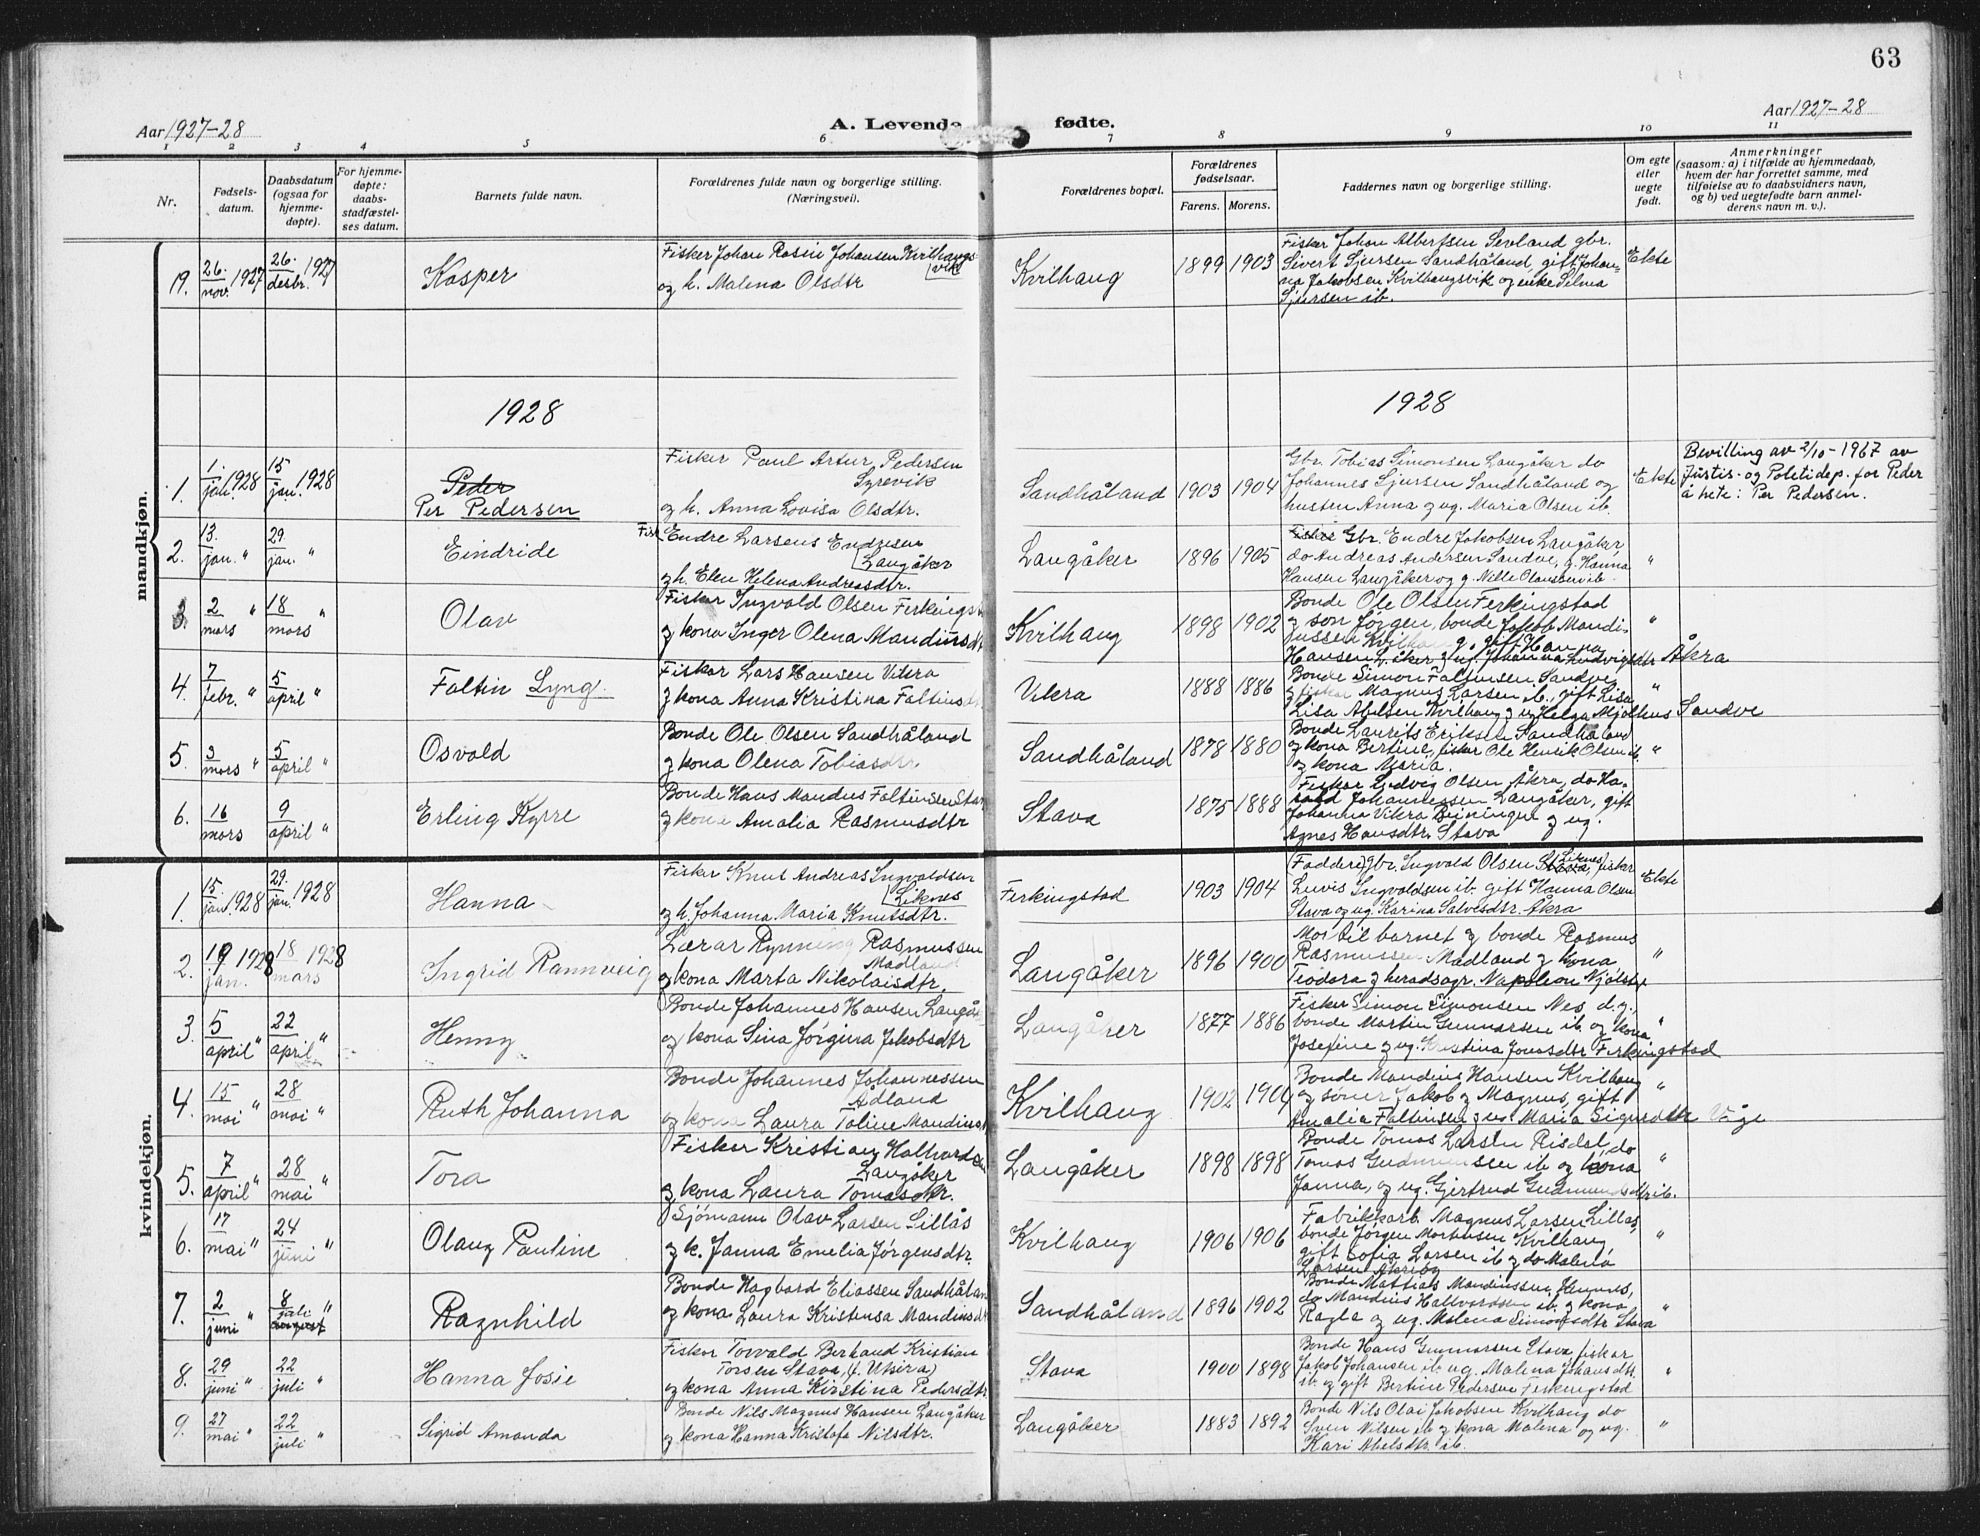 63
Aar 1927-28
A. Levende fødte.
Aar 1927-28
1 2 3 4 5 6 7 8 9 10 11
Nr.
Fødsels-
datum.
Daabsdatum
(ogsaa for
hjemme-
døpte).
For hjemme-
døpte:
daabs-
stadfæstel-
ses datum.
Barnets fulde navn.
Forældrenes fulde navn og borgerlige stilling.
(Næringsvei).
Forældrenes bopæl.
Forældrenes
fødselsaar.
Farens. Morens.
Faddernes navn og borgerlige stilling.
Om egte
eller
uegte
født.
Anmerkninger
(saasom: a) i tilfælde av hjemmedaab,
hvem der har forrettet samme, med
tilføielse av to daabsvidners navn,
og b) ved uegtefødte barn anmel-
derens navn m. v.).
mandkjøn.
19. 26. nov. 1927 26. desbr. 1927 Kasper
Fisker Johan Rasin Johansen Kvilhaugs-
vik
og h. Malena Olsdtr
Kvilhaug 1899 1903
Fisker Johan Albertsen Sevland gbr.
Sivert Sjursen Sandhåland, gift Johan-
na Jakobsen Kvilhaugsvik og enke Selma
Sjursen ib.
Ekte
1928
1928
1. 1. jan. 1928 15 jan. 1928 Peder
Per Pedersen
Fisker Paul Artur Pedersen
Syrevik
og h. Anna Lovisa Olsdtr.
Sandhåland 1903 1904
Gbr. Tobias Simonsen Langåker do
Johannes Sjursen Sandhåland og
husten Anna og ug. Maria Olsen ib.
Ekte
Bevilling av 2/10-1967 av
Justis- og Politidep. for Peder
å hete: Per Pedersen.
2. 13. jan. " 29. jan. " Eindride
Fisk. Endre Larsens Endresen
Langåker
og h. Elen Helena Andreasdtr.
Langåker 1896 1905
Fisker Gbr. Endre Jakobsen Langåker
do Andreas Andersen Sandve, g. Hanna
Hansen Langåker og g. Nille Olausen ib.
"
3. 2 mars " 18 mars " Olav
Fisker Ingvald Olsen Ferkingst
og kona Inger Olena Mandiusdt
Kvilhaug 1898 1902
Bonde Ole Olsen Ferkingstad
og son Jørgen, bonde Jakob Mandi-
ussen Kvilhaug, gift Hanna
Hansen L.åker og ug. Johanna Ludvigsdtr Åkra
"
4. 7 febr. " 5 april " Faltin Lyng.
Fisker Lars Hansen Vikra
og kona Anna Kristina Faltinsdt
Vikra 1888 1886
Bonde Simon Faltinsen Sandve
og fisker Magnus Larsen ib., gift Lisa
Lisa Abelsen Kvilhaug og ug Helga Mjølhus Sandve
"
5. 3 mars " 5 april " Osvald
Bonde Ole Olsen Sandhåland
og kona Olena Tobiasdtr
Sandhåland 1878 1880
Bonde Laurits Eriksen Sandhåland
og kona Bertine, fisker Ole Henrik Olsen ib.
og kona Maria.
"
6. 16 mars 9 april " Erling Kyrre
Bonde Hans Mandius Faltinsen Stav
og kona Amalia Rasmusdtr
Stava 1875 1888
Fisker Ludvig Olsen Åkra, do Ha-
rald Johannessen Langåker, gift
Johanna Vikra Bæningen og ug.
Agnes Hansdtr. Stava
kvindekjøn.
1. 15. jan. 1928 29. jan. 1928 Hanna
Fisker Knut Andreas Ingvaldsen
Liknes
og h. Johanna Maria Knutsdtr.
Ferkingstad 1903 1904
(Faddere) Gbr. Ingvald Olsen Stava (Liknes), fisker
Lewis Ingvaldsen ib. gift Hanna Olsen
Stava og ug. Karina Salvesdtr. Åkra
Ekte
2. 19 jan. 1928 18 mars 1928 Ingrid Rannveig
Lærar Rynning Rasmussen
Madland
og kona Marta Nikolaisdtr.
Langåker 1896 1900
Mor til barnet og bonde Rasmus
Rasmussen Madland og kona
Teodora og heradsagr. Napoleon Njølst
"
3 5 april " 22 april " Henny
Bonde Johannes Hansen Langåk
og kona Sina Jørgina Jakobsdtr
Langåker 1877 1886
Fisker Simon Simonsen Nes d.y.,
bonde Martin Gunnarsen ib. og kona
Josefine og ug. Kristina Jonasdtr Ferkingstad
"
4. 15 mai " 28 mai " Ruth Johanna
Bonde Johannes Johannessen
Ådland
og kona Laura Toline Mandiusdt
Kvilhaug 1902 1904
Bonde Mandius Hansen Kvilhaug
og søner Jakob og Magnus, gift
Amalia Faltinsen og ug Maria Sigurdtr Våge
"
5. 7 april " 28 mai " Tora
Fisker Kristian Halvordsen
Langåker
og kona Laura Tomasdtr.
Langåker 1898 1898
Bonde Tomas Larsen Risdal, do
Tomas Gudmundsen ib og kona
Janna, og ug. Gjertrud Gudmundsdtr ib.
"
6. 17 mai " 24 juni " Olaug Pauline
Sjømann Olav Larsen Lillås
og k. Janna Emelia Jørgensdtr.
Kvilhaug 1906 1906
Fabrikkarb. Magnus Larsen Lillås,
bonde Jørgen Mortensen Kvilhaug
gift Sofia Larsen ib og do Malena
Larsen Åkriog
"
7. 2 juni " 8 juli august " Ragnhild
Bonde Hagbard Eliassen Sandhålan
og kona Laura Kristensa Mandiusdt
Sandhåland 1896 1902
Bonde Mattias Mandiussen Hemnes,
do Mandius Hallvordssen ib. og kona
Ragla og ug. Malena Simonsdtr Stava
"
8. 29 juni " 22 juli " Hanna Josie
Fisker Torvald Berhaud Kristian
Torsen Stava, (f. Utsira)
og kona Anna Kirstina Pedersdtr
Stava 1900 1898
Bonde Hans Gunnarsen Stava, fisker
Jakob Johansen ib. ug. Malena Johansdtr.
ib. og gift Bertine Pedersen Ferkingstad
"
9. 27 mai " 22 juli " Sigrid Amanda
Bonde Nils Magnus Hansen Langåker
og kona Hanna Kristofa Nilsdtr.
Langåker 1883 1892
Bonde Nils Olai Jakobsen Kvilhaug do
Sven Nilsen ib og kona Malena og ug.
Kari Abelsdtr ib.
"